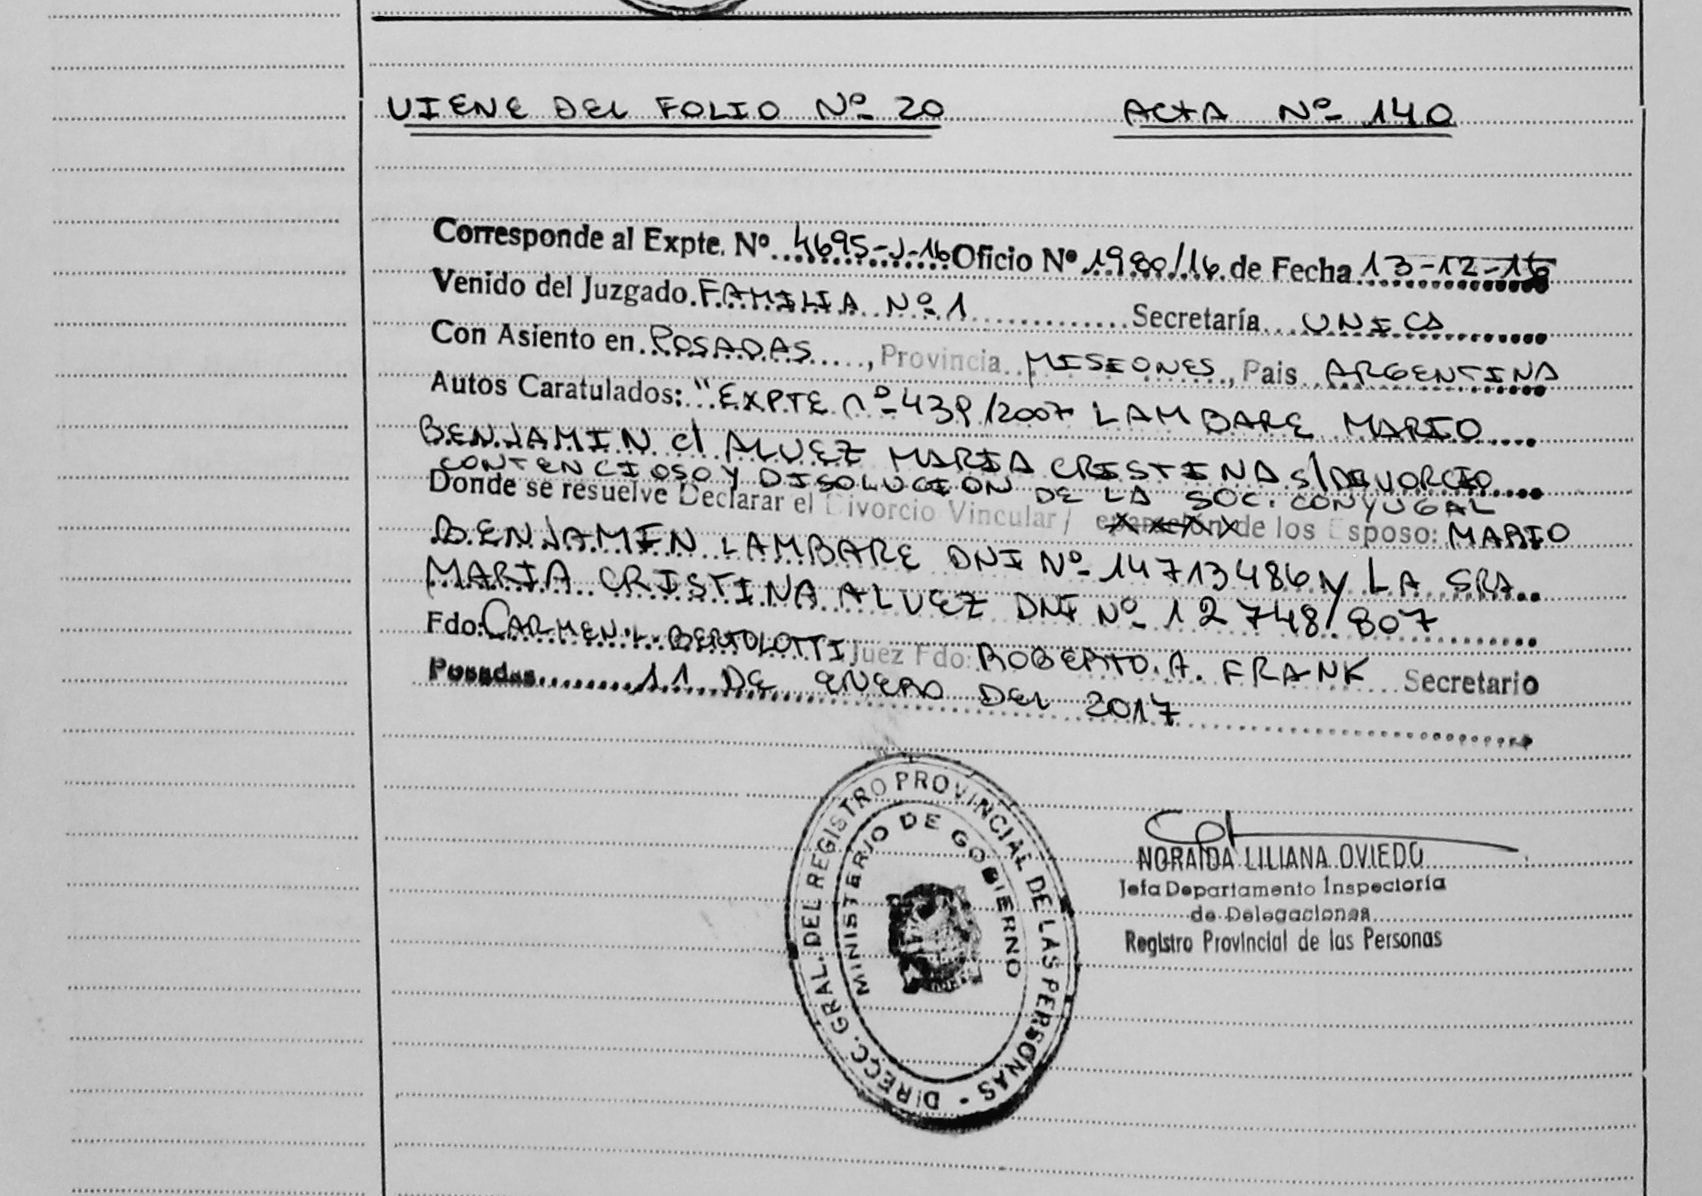 VIENE DEL FOLIO Nº 20 ACTA Nº 140
Corresponde al Expte. Nº 4695-J-16 Oficio Nº 1980/16 de Fecha 13-12-16
Venido del Juzgado FAMILIA Nº 1 Secretaría UNICA
Con Asiento en POSADAS, Provincia MISIONES, Pais ARGENTINA
Autos Caratulados: "EXPTE nº 439/2007 LAMBARE MARIO
BENJAMIN c/ ALVEZ MARIA CRISTINA s/ DIVORCIO
CONTENCIOSO Y DISOLUCION DE LA SOC. CONYUGAL
Donde se resuelve Declarar el Divorcio Vincular/ de los Esposo: MARIO
BENJAMIN LAMBARE DNI Nº 14713486 y LA SRA.
MARIA CRISTINA ALVEZ DNI Nº 12748/807
Fdo: CARMEN L. BERTOLOTTI Juez Fdo: ROBERTO A. FRANK Secretario
Posadas 11 DE ENERO DEL 2017
DIRECC. GRAL. DEL REGISTRO PROVINCIAL DE LAS PERSONAS -
MINISTERIO DE GOBIERNO
NORAIDA LILIANA OVIEDO
Jefa Departamento Inspectoría
de Delegaciones
Registro Provincial de las Personas